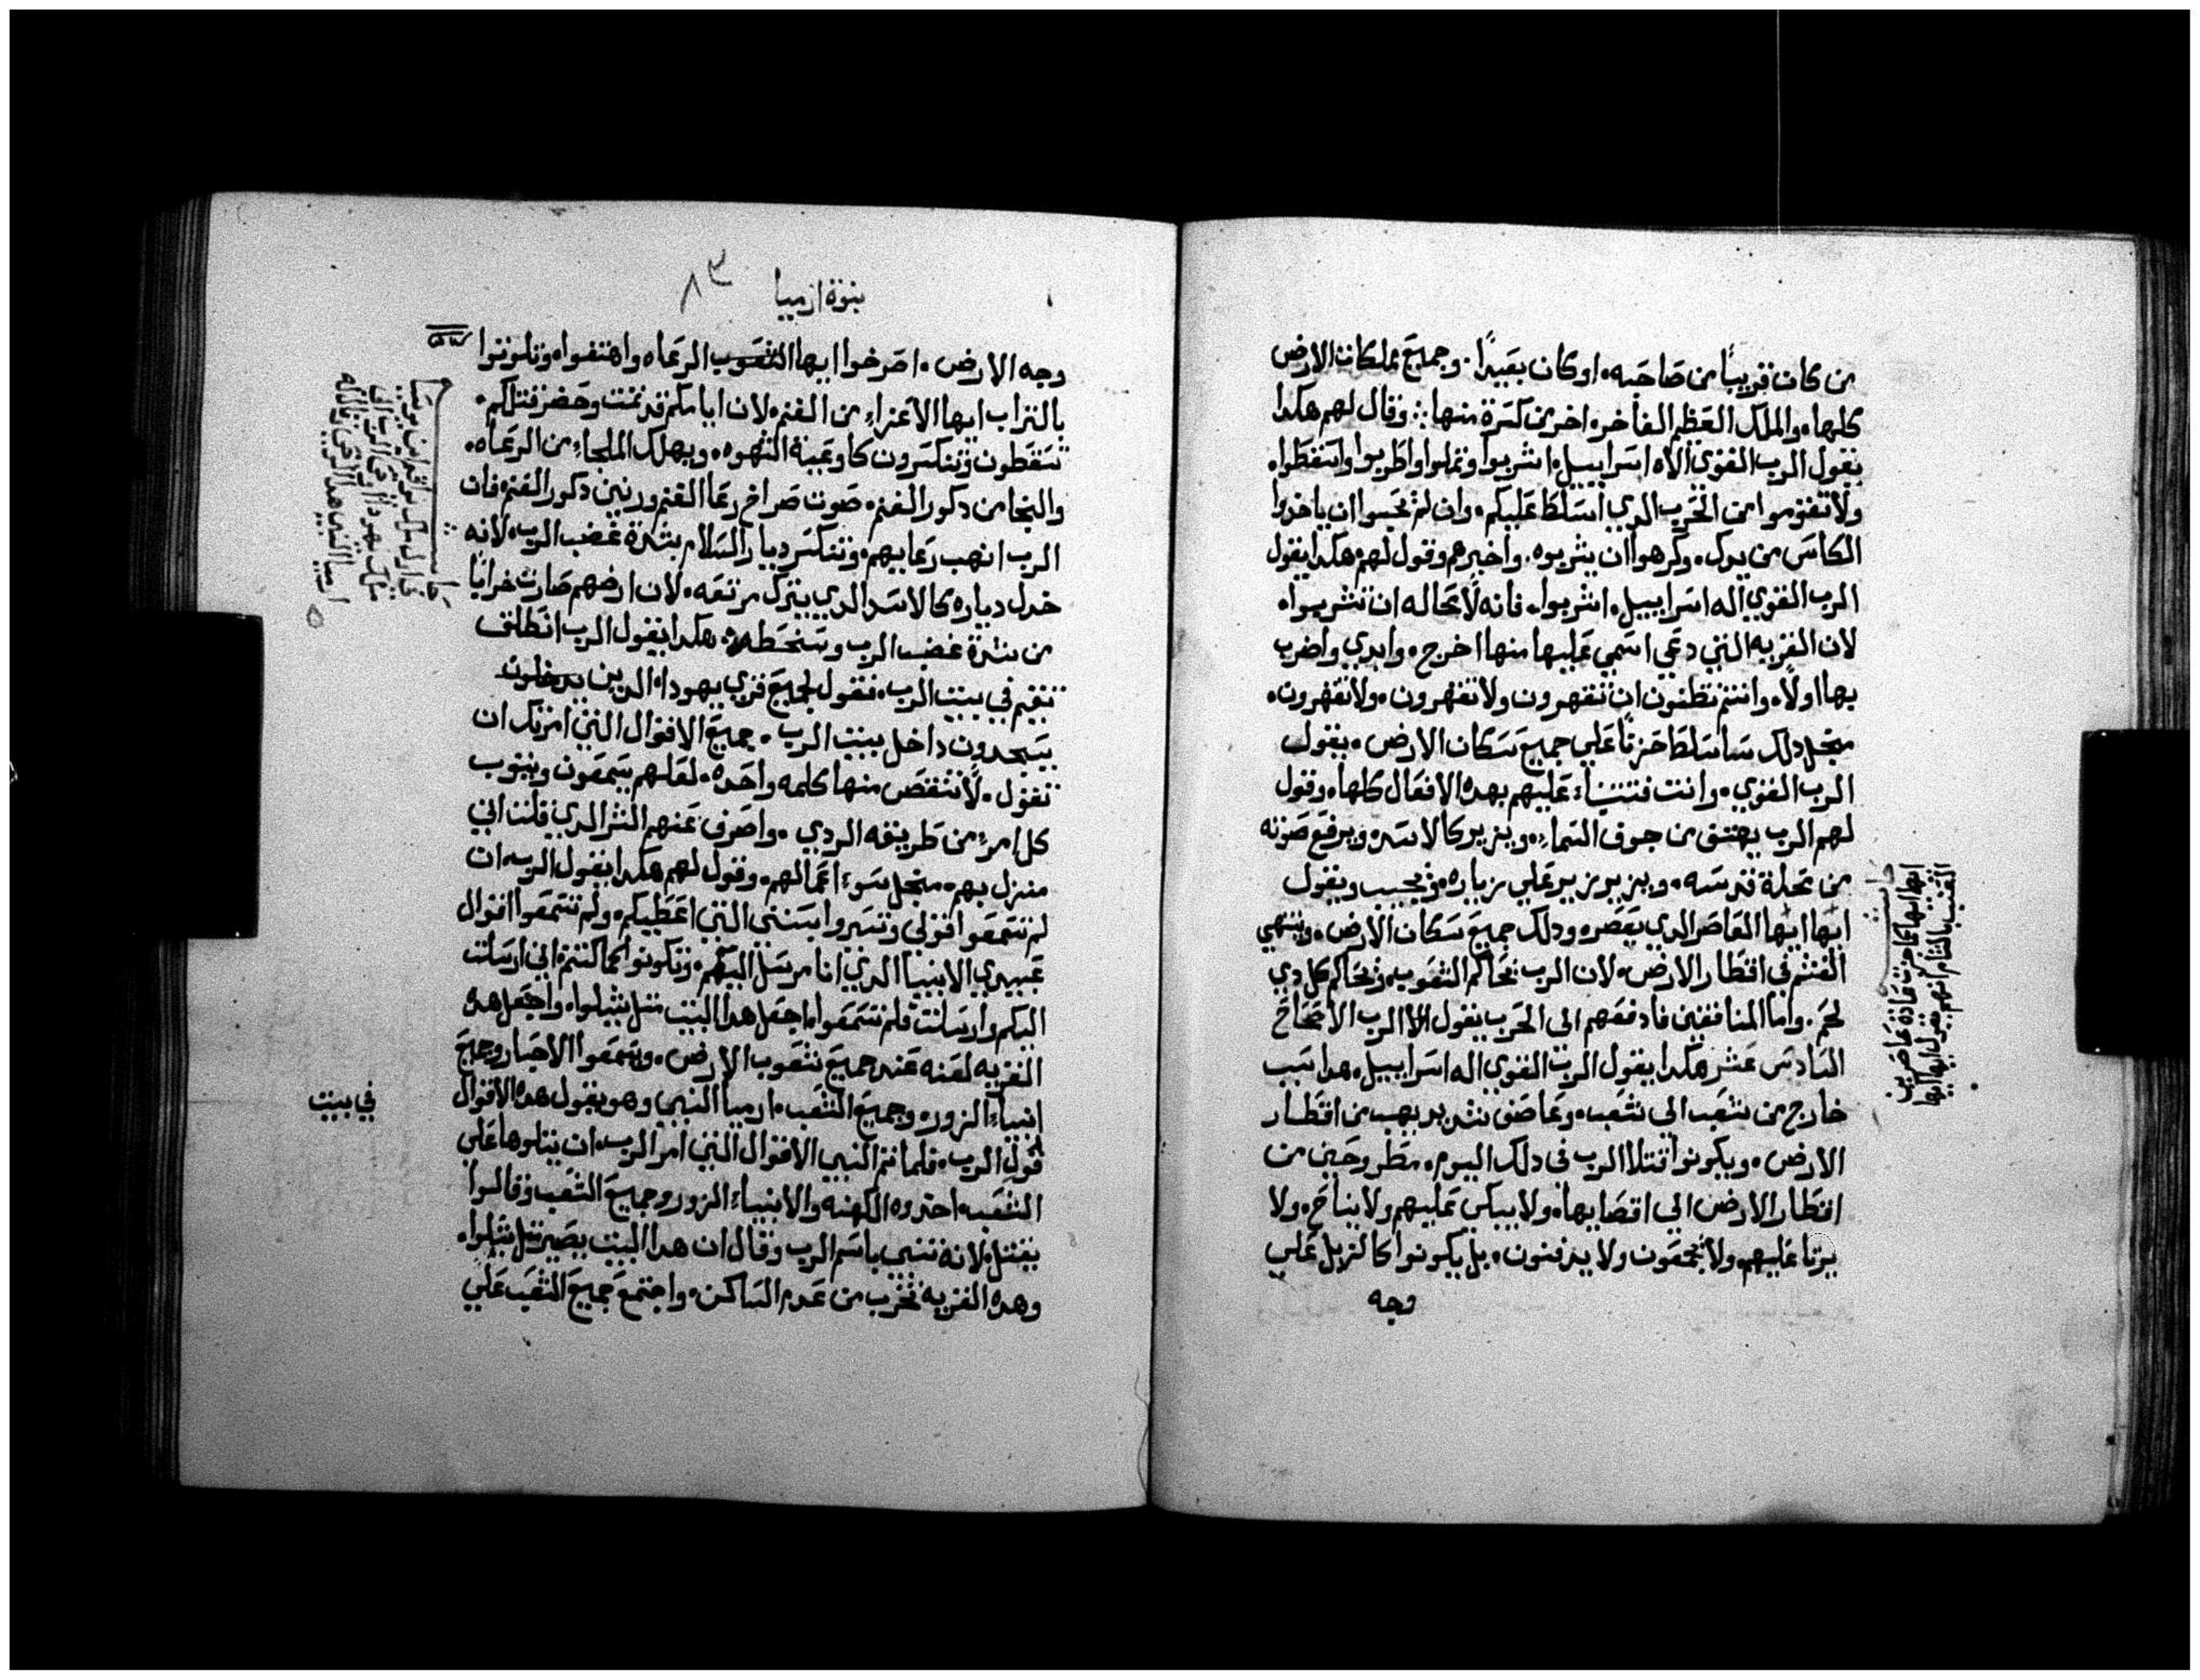 من كان قريباً من صاحبه. او كان بعيداً. وجميع مملكات الارض
كلها. والملك العظيم الفاخر. اخرين كسرة منها: وقال لهم هكدا
يقول الرب القوي الاه اسراييل. اشربوا وتملوا واطربوا واسقطوا.
ولا تقوموا من الحرب الدي اسلط عليكم. وان لم يحبوا ان ياخدوا
الكاس من يدك. وكرهوا ان يشربوه. واخبرهم وقول لهم هكدا يقول
الرب القوي اله اسراييل. اشربوا. فانه لا محاله ان تشربوا.
لان القريه التي دعي اسمي عليها منها اخرج. وابدي واضرب
بها اولاً. وانتم تظنون ان تقهرون ولا تقهرون. ولا تقهرون.
منجل دلك ساسلط حرباً علي جميع سكان الارض. يقول
الرب القوي. وانت فتنبأ عليهم بهده الافعال كلها. وقول
لهم الرب يهتف من جوف السماء. ويزير كالاسد. ويرفع صوته
من محلة قدسه. ويزير زير علي زياره. ويجيب ويقول
ايها ايها العاصر الدي يعصر. ودلك جميع سكان الارض. وينتهي
القتم في اقطار الارض. لان الرب يحاكم الشعوب. ويحاكم كل دي
لحم. واما المنافقين فادفعهم الي الحرب يقول الرب الاصحاح
السادس عشر هكدا يقول الرب القوي اله اسراييل. هدا سبب
خارج من شعب الي شعب. وعاصف شديد يهب من اقطار
الارض. ويكونوا قتلا الرب في دلك اليوم. مطروحين من
اقطار الارض الي اقصايها. ولا يبكي عليهم ولا يناح. ولا
يرثا عليهم. ولا يجمعون ولا يدفنون. بل يكونوا كالزبل علي
وجه
انها ايها كما جرت عادة عاصرين
العنب بالشام انهم يقولوا ايها ايها
نبوة ارميا ٨٣
وجه الارض. اصرخوا ايها الشعوب الرعاه واهتفوا. وتلوثوا
بالتراب ايها الاعزاء من الغنم. لان ايامكم قد تمت وحضر قتلكم.
تسقطون وتنكسرون كاوعية الشهوه. ويهلك الملجاء من الرعاه.
والنجا من دكور الغنم. صوت صراخ رعا الغنم ورنين دكور الغنم فان
الرب انهب رعاييهم. وتنكسر ديار السلام بشدة غضب الرب. لانه
خدل دياره كالاسد الدي يترك مرتعه. لان ارضهم صارت خراباً
من شدة غضب الرب وسخطه. هكدا يقول الرب انطلق
تقيم في بيت الرب. فتقول لجميع قري يهودا. الدين يدخلون
يسجدون داخل بيت الرب. جميع الاقوال التي امرتك ان
تقول. لا تنقص منها كلمه واحده. لعلهم يسمعون ويتوب
كل امرء من طريقه الردي. واصرف عنهم الشر الدي قلت اني
منزل بهم. منجل سوء اعمالهم. وقول لهم هكدا يقول الرب. ان
لم تسمعوا قولي وتسيروا بسنتي التي اعطيكم. ولم تسمعوا اقوال
عبيدي الانبيا الدي انا مرسل اليكم. وتكونوا كما كنتم. اني ارسلت
اليكم وارسلت فلم تسمعوا. اجعل هدا البيت مثل شيلوا. واجعل هده
القريه لعنه عند جميع شعوب الارض. ويسمعوا الاحبار وجميع
انبياء الزور. وجميع الشعب. ارميا النبي وهو يقول هده الاقوال
في بيت
قول الرب. فلما اتم النبي الاقوال التي امر الرب. ان يتلوها علي
الشعب. اخدوه الكهنه والانبياء الزور وجميع الشعب وقالوا
يقتل. لانه تنبي باسم الرب وقال ان هدا البيت يصير مثل شيلوا.
وهده القريه تخرب من عدم الساكن. واجتمع جميع الشعب علي